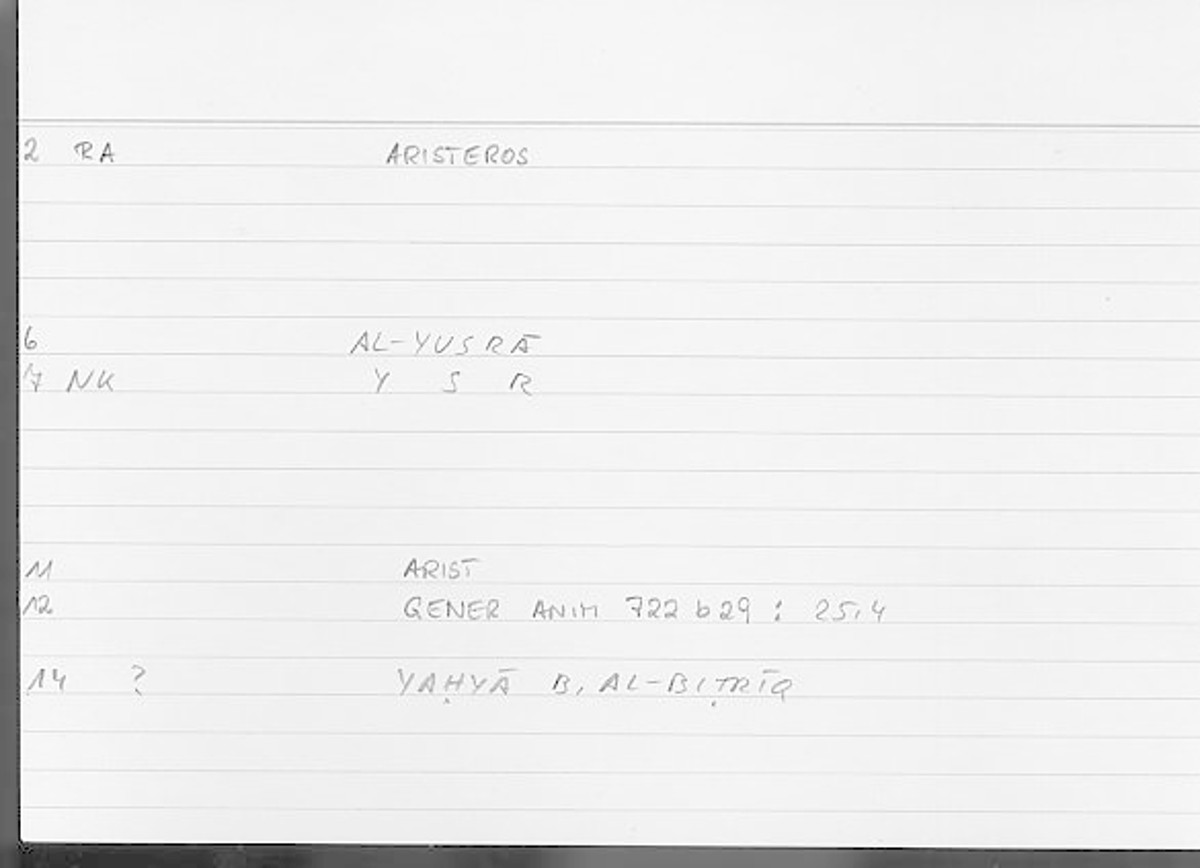 2 RA ARISTEROS
6 AL-YUSRĀ
7 NK Y S R
11 ARIST
12 GENER ANIM 722 b 29 : 25,4
14 ? YAḤYĀ B, AL-BIṬRĪQ